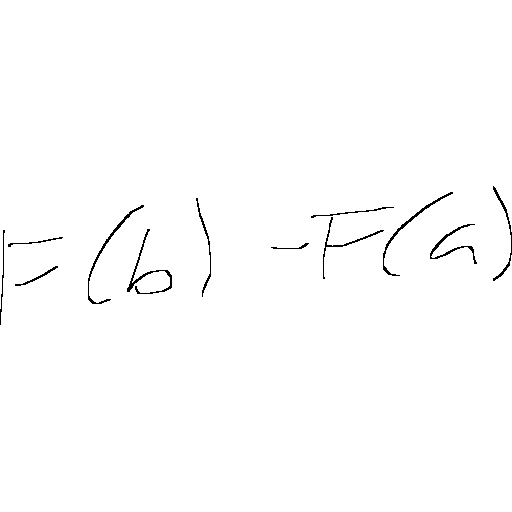 F(b) - F(a)